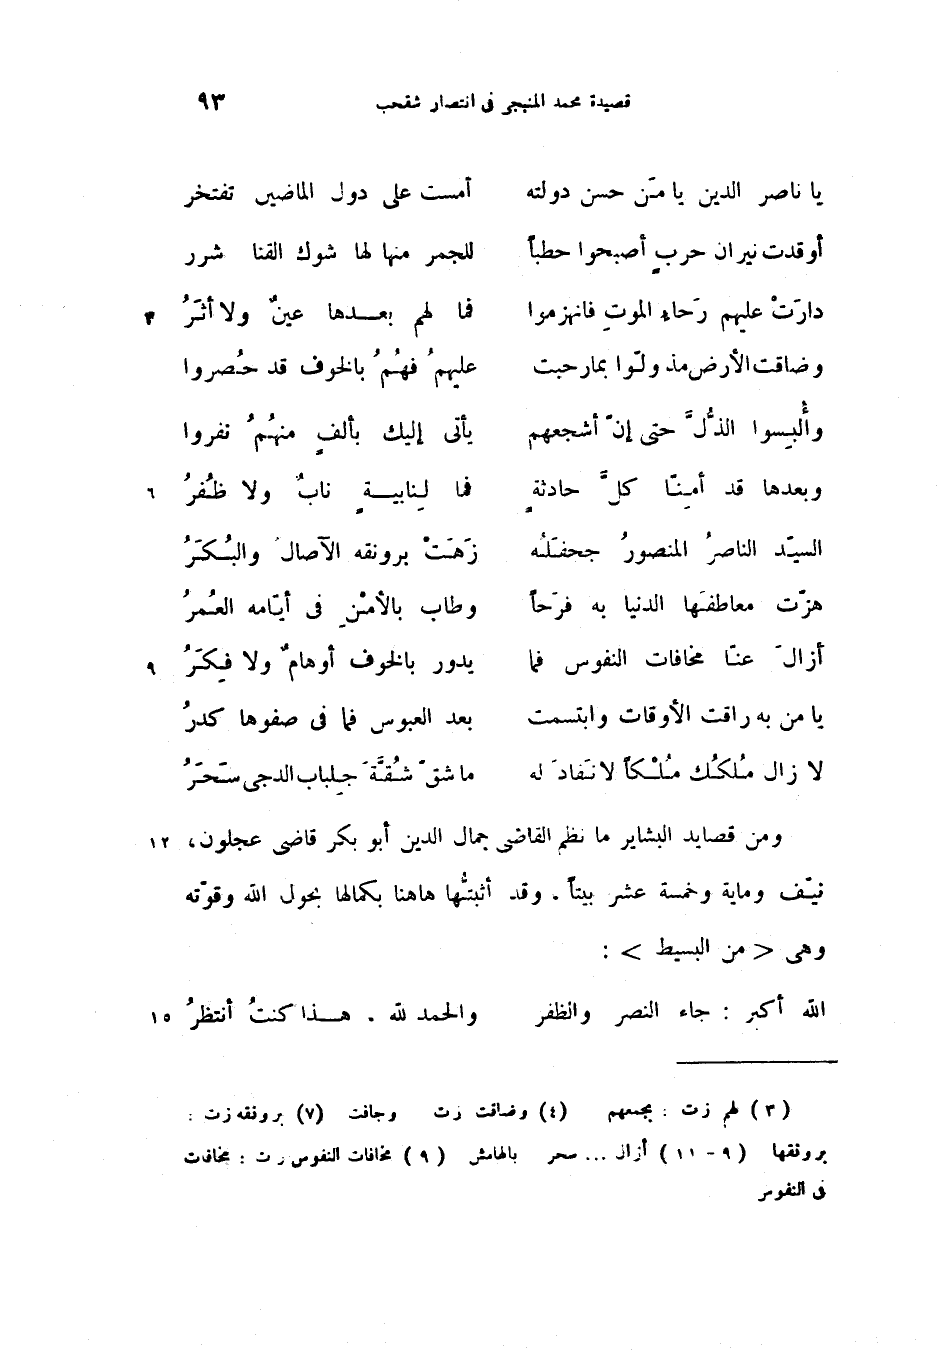 قصيدة محمد المنبجى فى انتصار شقحب ٩٣
يا ناصر الدين يا مَن حسن دولته أمست على دول الماضين تفتخر
أوقدت نيران حربٍ أصبحوا حطباً للجمر منها لها شوك القنا شرر
دارَتْ عليهم رَحاء الموتِ فانهزموا فما لهم بعدها عينٌ ولا أثَرُ ٣
وضاقت الأرض مذ ولّوا بما رحبت عليهمُ فهُمُ بالخوف قد حُصروا
وأُلبِسوا الذُّلَّ حتى إنّ أشجعهم يأتى إليك بألفٍ منهُمُ نفروا
وبعدها قد أمِنّا كلَّ حادثةٍ فما لِنابيةٍ نابٌ ولا ظُفرُ ٦
السيّد الناصرُ المنصورُ جحفَلُه زَهَتْ برونقه الآصالُ والبُكَرُ
هزّت معاطفَها الدنيا به فرَحاً وطاب بالأمْنِ فى أيّامه العُمرُ
أزالَ عنّا مخافات النفوس فما يدور بالخوف أوهامٌ ولا فِكَرُ ٩
يا من به راقت الأوقات وابتسمت بعد العبوس فما فى صفوها كدرُ
لا زال مُلكُك مُلْكاً لا نَفادَ له ما شقّ شُقَّةَ جِلباب الدجى سَحَرُ
ومن قصايد البشاير ما نظم القاضى جمال الدين أبو بكر قاضى عجلون، ١٢
نيّف وماية وخمسة عشر بيتاً. وقد أثبتُّها هاهنا بكمالها بحول الله وقوّته
وهى < من البسيط > :
الله أكبر : جاء النصر والظفر والحمد لله . هذا كنتُ أنتظرُ ١٥
(٣) لهم زت : بجمعهم (٤) وضاقت زت وجافت (٧) برونقه زت :
برونقها (٩ - ١١) أزال ... سحر بالهامش (٩) مخافات النفوس زت : مخافات
فى النفوس